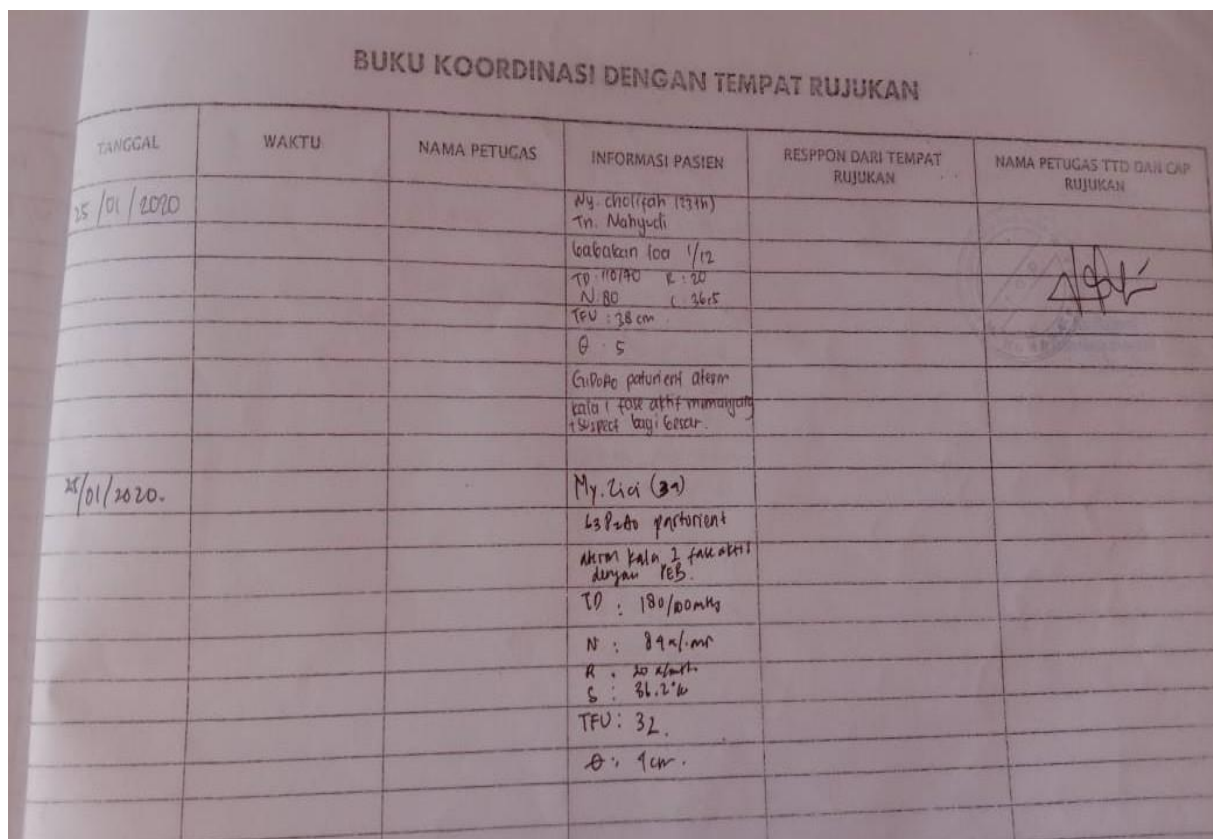 BUKU KOORDINASI DENGAN TEMPAT RUJUKAN
TANGGAL
WAKTU
NAMA PETUGAS
INFORMASI PASIEN
RESPPON DARI TEMPAT
RUJUKAN
NAMA PETUGAS TTD DAN CAP
RUJUKAN
25/01/2020
Ny. cholifah (23th)
Tn. Nahyudi
babakan loa 1/12
TD: 110/70 R: 20
N: 80 36,5
TFU: 38 cm.
θ: 5
G1P0A0 paturient aterm
kala 1 fase aktif memanjang
+ suspect bayi besar.
25/01/2020.
My. Zici
G3P2A0 parturient
aterm kala I fase aktif
dengan PEB.
TD: 180/100 mmHg
N: 84x/mnt
R: 20 x/mnt.
S: 36.2°c
TFU: 32.
θ: 9cm.